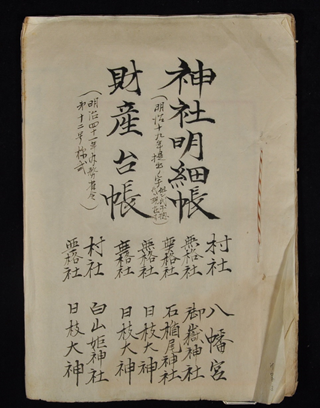 神社明細帳
(明治十九年提出ノ
財産台帳
(明治四十一年内務省令
第十二号様式)
村社 八幡宮
無格社 御嶽神社
無格社 石楯尾神社
無格社 日枝大神
無格社 日枝大神
村社 白山姫神社
無格社 日枝大神